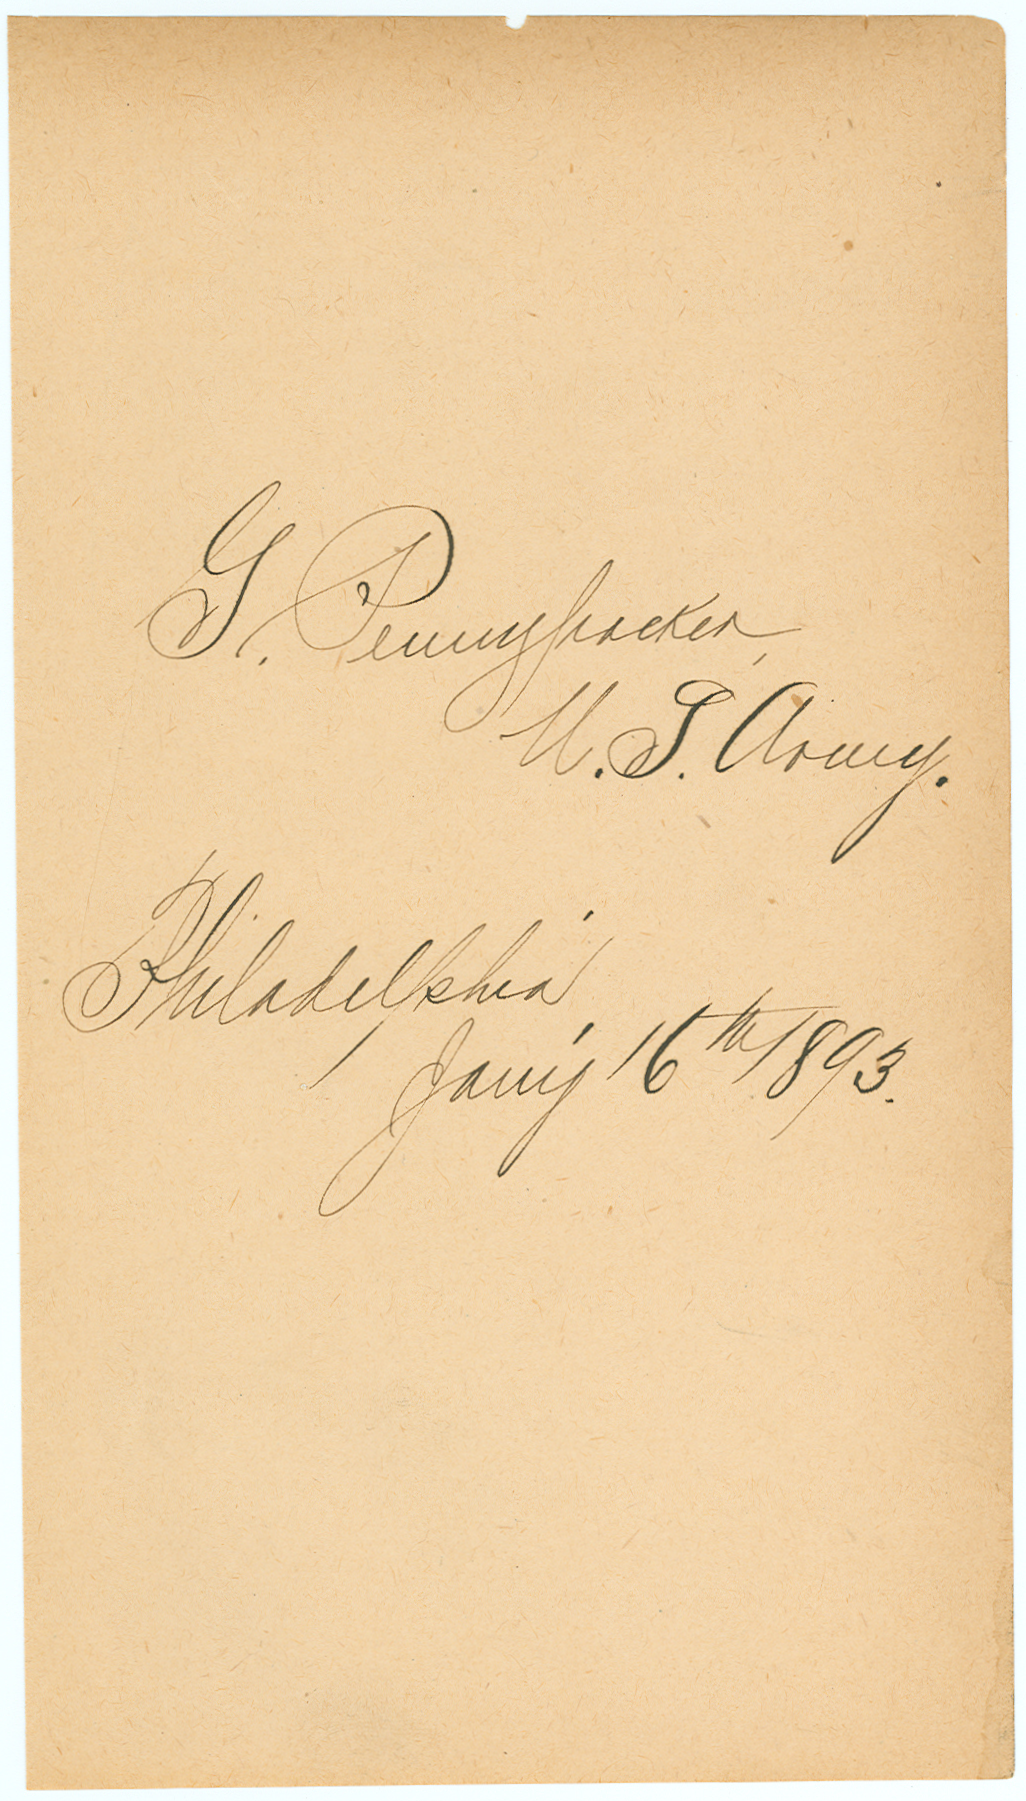 G. Pennypacker,
U. S. Army.
Philadelphia,
Jan'y 16th 1893.